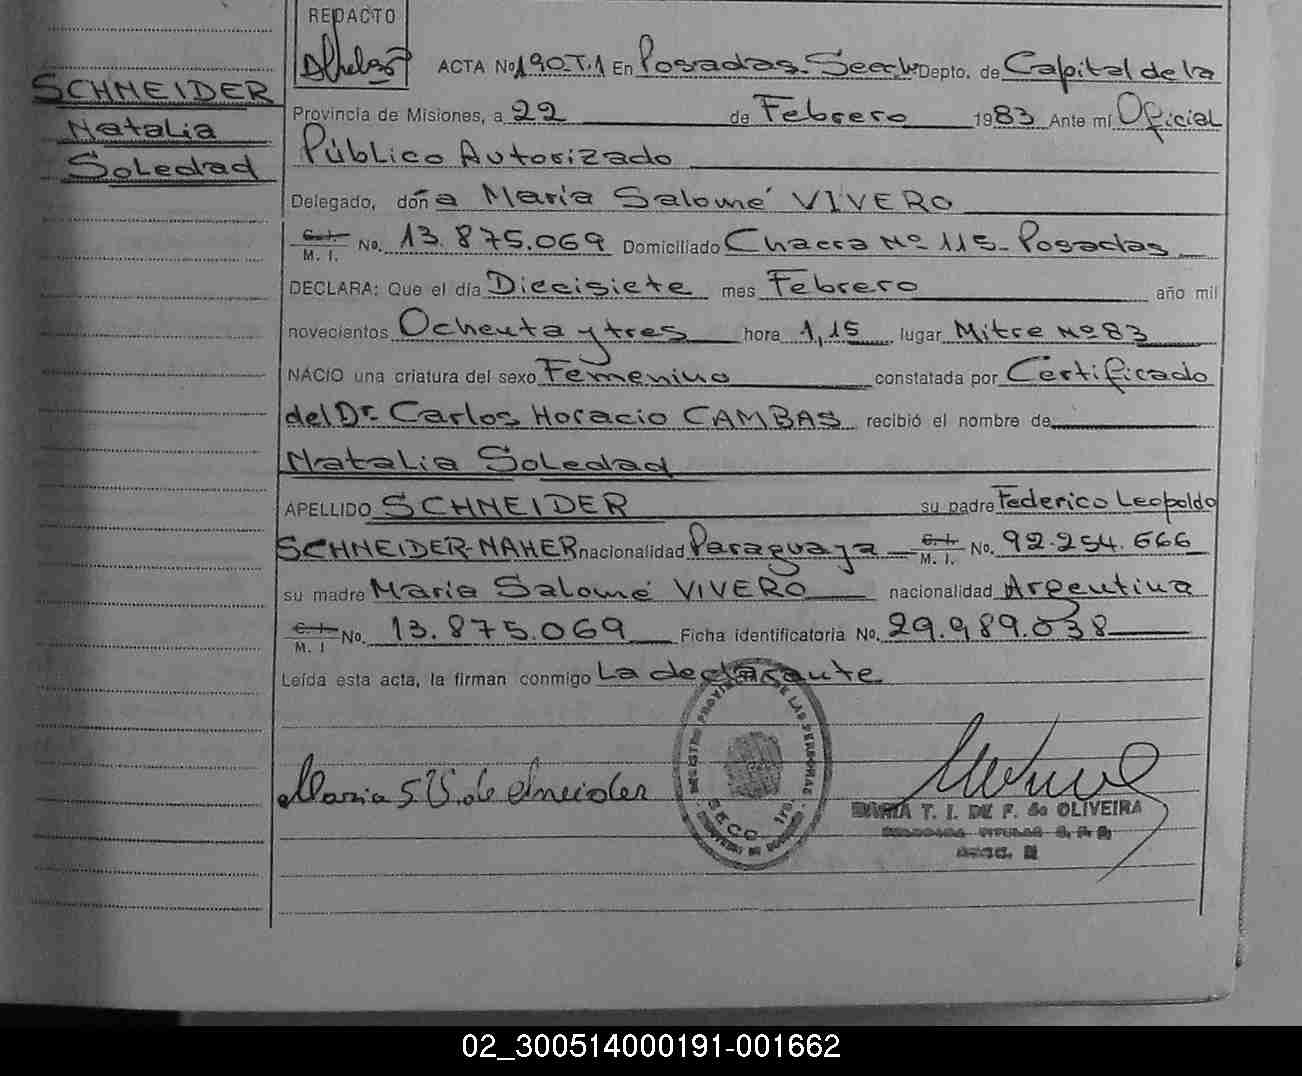 REDACTO
SCHNEIDER
Natalia
Soledad
ACTA No 190-T.1 En Posadas-Secc. Depto. de Capital de la
Provincia de Misiones, a 22 de Febrero 1983 Ante mí Oficial
Público Autorizado
Delegado, doña María Salomé VIVERO
C. I. M. I. No. 13.875.069 Domiciliado Chacra Nº 115-Posadas
DECLARA: Que el día Diecisiete mes Febrero año mil
novecientos Ochenta y tres hora 1,15 lugar Mitre Nº 83
NACIO una criatura del sexo Femenino constatada por Certificado
del Dr. Carlos Horacio CAMBAS recibió el nombre de
Natalia Soledad
APELLIDO SCHNEIDER su padre Federico Leopoldo
SCHNEIDER-MAHER nacionalidad Paraguaya C. I. M. I. No. 92.254.666
su madre María Salomé VIVERO nacionalidad Argentina
C. I. M. I No. 13.875.069 Ficha identificatoria No. 29.989.038
Leída esta acta, la firman conmigo La declarante
REGISTRO PROVINCIAL DE LAS PERSONAS
SECC.
MARIA T. I. DE F. de OLIVEIRA
02_300514000191-001662